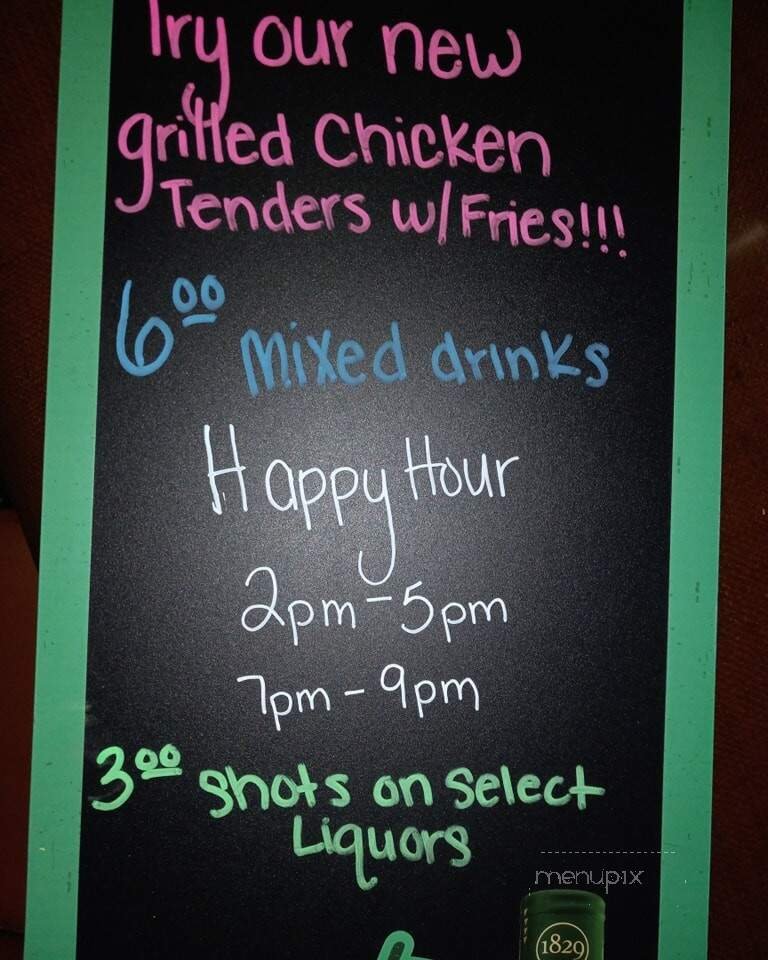 Try our new
grilled Chicken
Tenders w/Fries!!!
6⁰⁰ mixed drinks
Happy Hour
2pm-5pm
7pm-9pm
3⁰⁰ shots on select
Liquors
menupix
1829